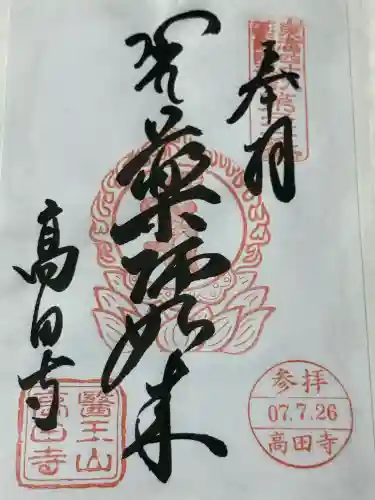 奉拝
薬師如来
高田寺
醫王山
高田寺
参拝
07.7.26
高田寺